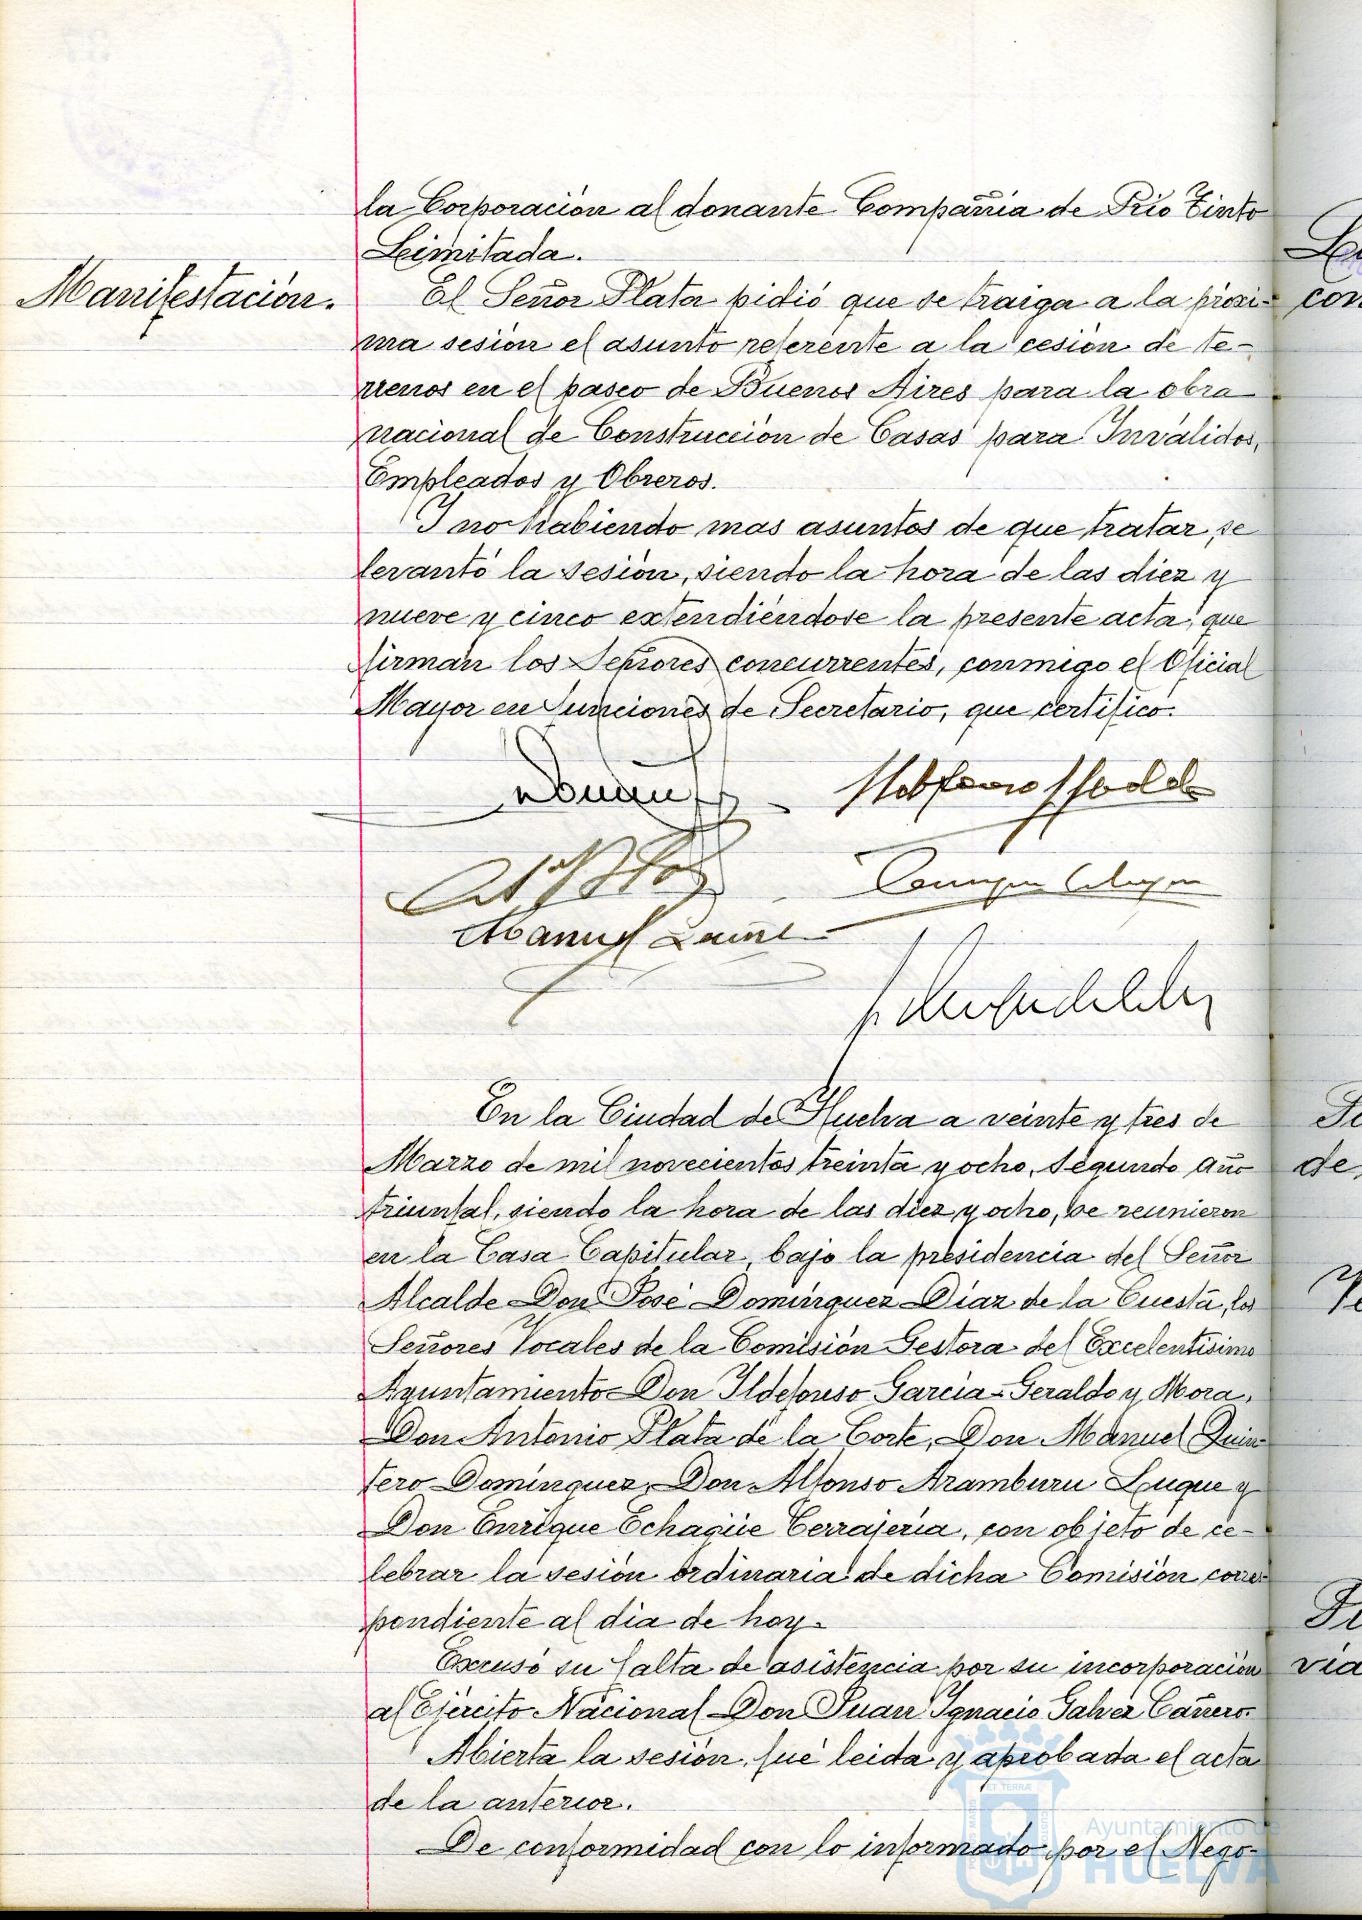 la Corporación al donante Compañía de Río Tinto
Limitada.
Manifestación.
El Señor Plata pidió que se traiga a la próxi-
ma sesión el asunto referente a la cesión de te-
rrenos en el paseo de Buenos Aires para la obra
nacional de Construcción de Casas para Inválidos,
Empleados y Obreros.
Y no habiendo mas asuntos de que tratar, se
levantó la sesión, siendo la hora de las diez y
nueve y cinco extendiéndose la presente acta, que
firman los Señores concurrentes, conmigo el Oficial
Mayor en funciones de Secretario, que certifico.
Manuel
En la Ciudad de Huelva a veinte y tres de
Marzo de mil novecientos treinta y ocho, segundo año
triunfal, siendo la hora de las diez y ocho, se reunieron
en la Casa Capitular, bajo la presidencia del Señor
Alcalde Don José Domínguez Díaz de la Cuesta, los
Señores Vocales de la Comisión Gestora del Excelentísimo
Ayuntamiento Don Ildefonso García-Geraldo y Mora,
Don Antonio Plata de la Corte, Don Manuel Quin-
tero Domínguez, Don Alfonso Aramburu Luque y
Don Enrique Echagüe Cerrajería, con objeto de ce-
lebrar la sesión ordinaria de dicha Comisión corres-
pondiente al día de hoy.
Excusó su falta de asistencia por su incorporación
al Ejército Nacional Don Juan Ignacio Galvez Cañero.
Abierta la sesión, fué leida y aprobada el acta
de la anterior.
De conformidad con lo informado por el Nego-
Ayuntamiento de
HUELVA